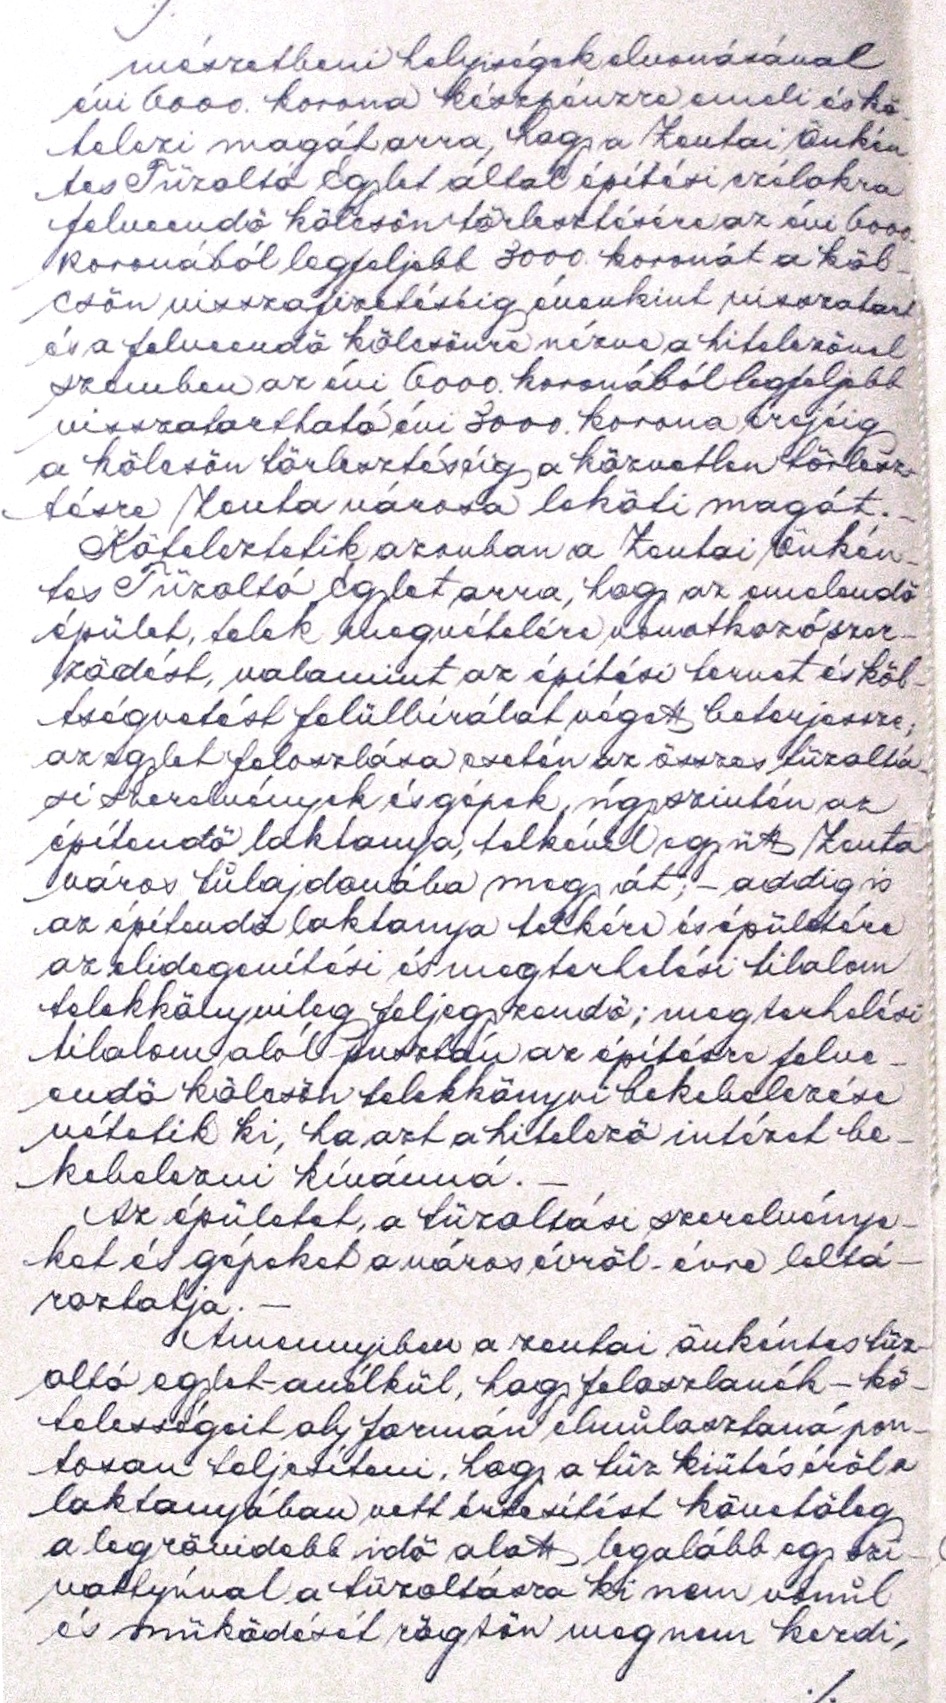 mészetbeni helyiségek elvonásával
évi 6000. korona készpénzre emeli és kö-
telezi magát arra, hogy a Zentai Önkén-
tes Tüzoltó Egylet által építési czélokra
felveendö kölcsön törlesztésére az évi 6000.
koronából legfeljebb 3000. koronát a köl-
csön visszafizetéséig évenkint visszatart
és a felveendö kölcsönre nézve a hitelezövel
szemben az évi 6000. koronából legfeljebb
visszatartható évi 3000. korona erejéig
a kölcsön törlesztéséig a közvetlen törlesz-
tésre Zenta városa leköti magát. —
Köteleztetik azonban a Zentai Önkén-
tes Tüzoltó Egylet arra, hogy az emelendö
épület, telek megvételére vonatkozó szer-
zödést, valamint az építési tervet és köl-
tségvetést felülbirálat végett beterjessze;
az egylet feloszlása esetén az összes tüzoltá-
si szerelvények és gépek, úgyszintén az
építendö laktanya, telkével együtt Zenta
város tulajdonába megy át; — addig is
az építendö laktanya telkére és épületére
az elidegenítési és megterhelési tilalom
telekkönyvileg feljegyzendö; megterhelési
tilalom alól pusztán az építésre felve-
endö kölcsön telekkönyvi bekebelezése
vétetik ki, ha azt a hitelezö intézet be-
kebelezni kívánná. —
Az épületet, a tüzoltási szerelvénye-
ket és gépeket a város évröl-évre leltá-
roztatja. —
Amennyiben a zentai önkéntes tüz-
oltó egylet - anélkül, hogy feloszlanék - kö-
telességeit oly formán elmulasztaná pon-
tosan teljesíteni, hogy a tüz kiütéséröl a
laktanyában vett értesítést követöleg
a legrövidebb idö alatt legalább egy szi-
vattyúval a tüzoltásra ki nem vonul
és müködését rögtön meg nem kezdi,
./.